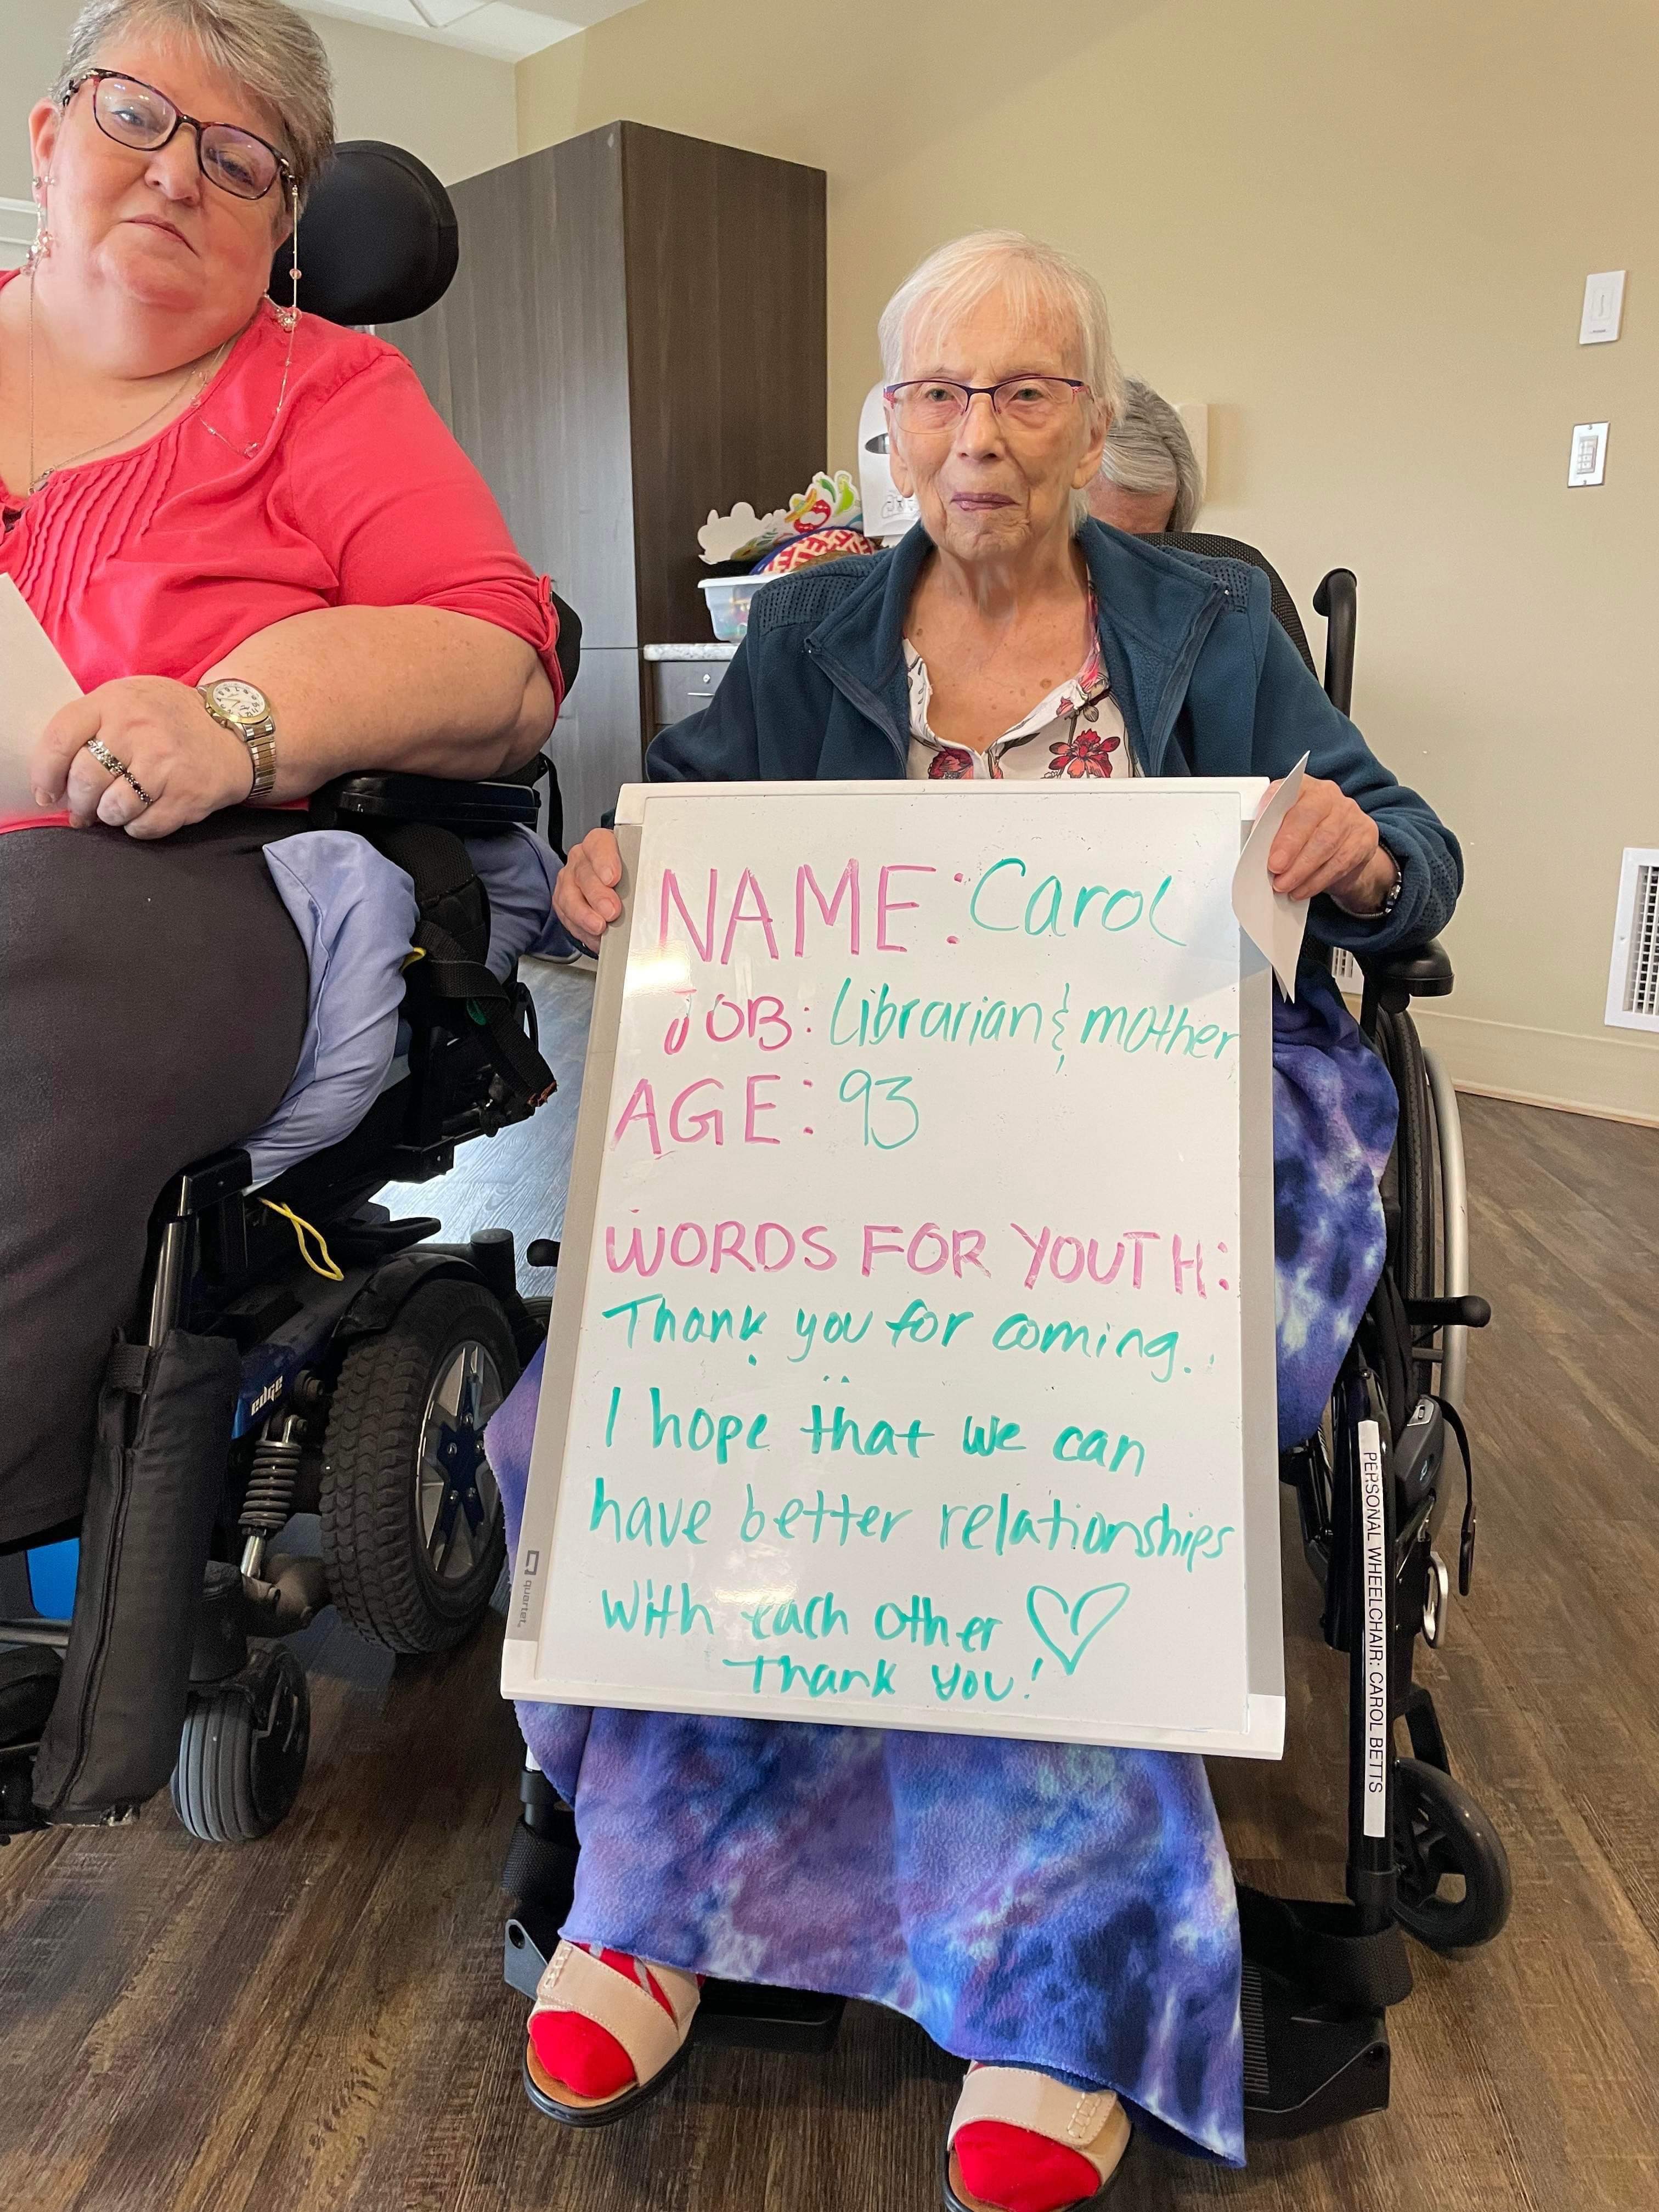 NAME: Carol
JOB: Librarian & mother
AGE: 93
WORDS FOR YOUTH:
Thank you for coming.
I hope that we can
have better relationships
with each other ♡
Thank you!
quartet
edge
PERSONAL WHEELCHAIR: CAROL BETTS